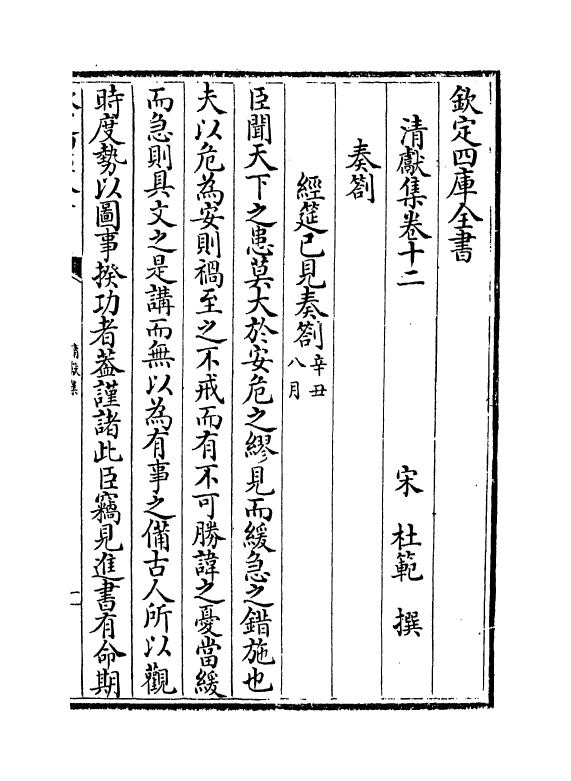 欽定四庫全書
清獻集卷十二
宋 杜範 撰
奏劄
經筵已見奏劄辛丑八月
臣聞天下之患莫大於安危之繆見而緩急之錯施也
夫以危為安則禍至之不戒而有不可勝諱之憂當緩
而急則具文之是講而無以為有事之備古人所以觀
時度勢以圖事揆功者葢謹諸此臣竊見進書有命期
清獻集
一